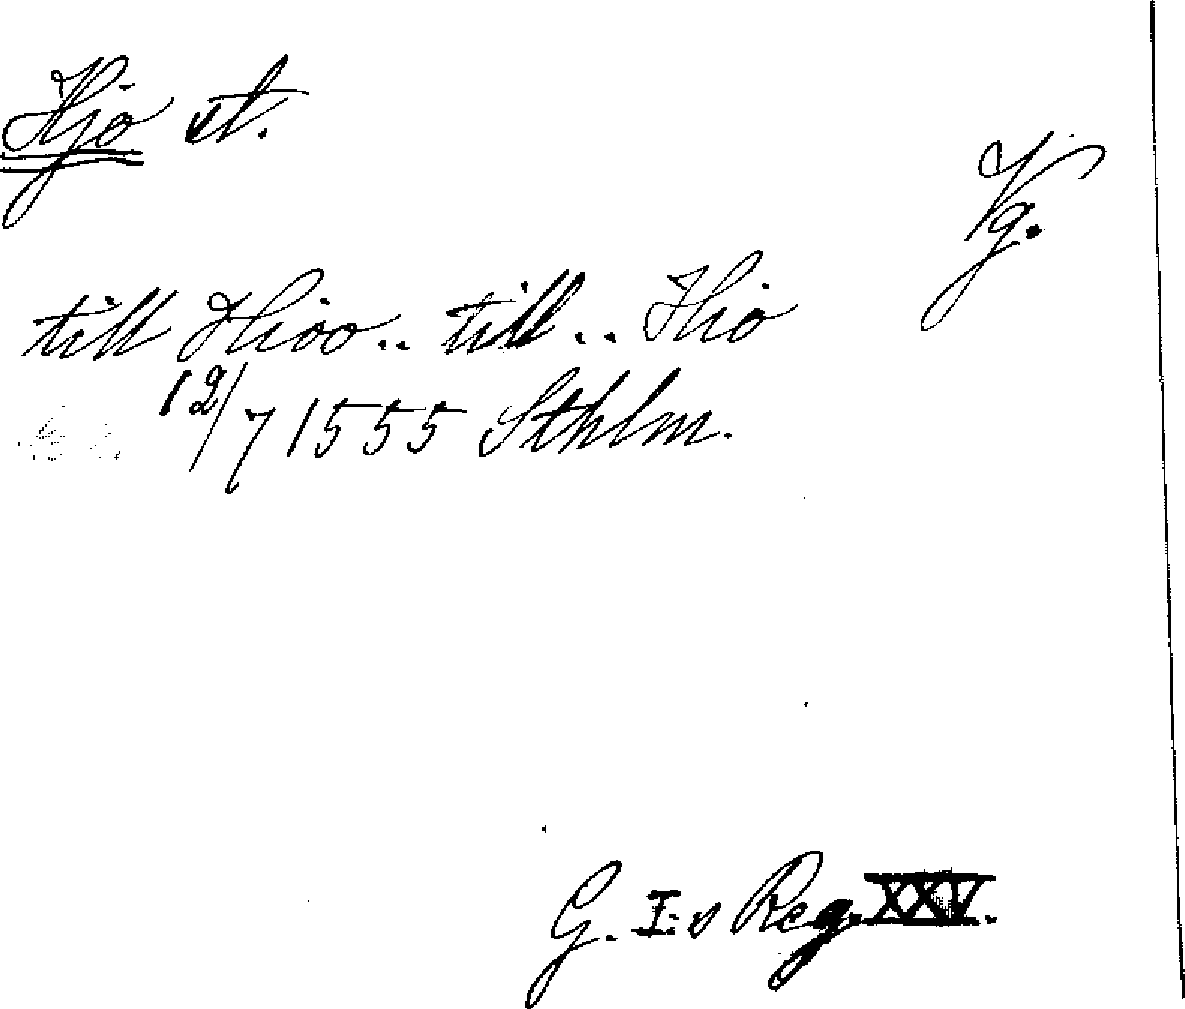 Hjo st.
Vg.
till Hioo.. till.. Hio
12/7 1555 Sthlm.
G. I:s Reg. XXV.